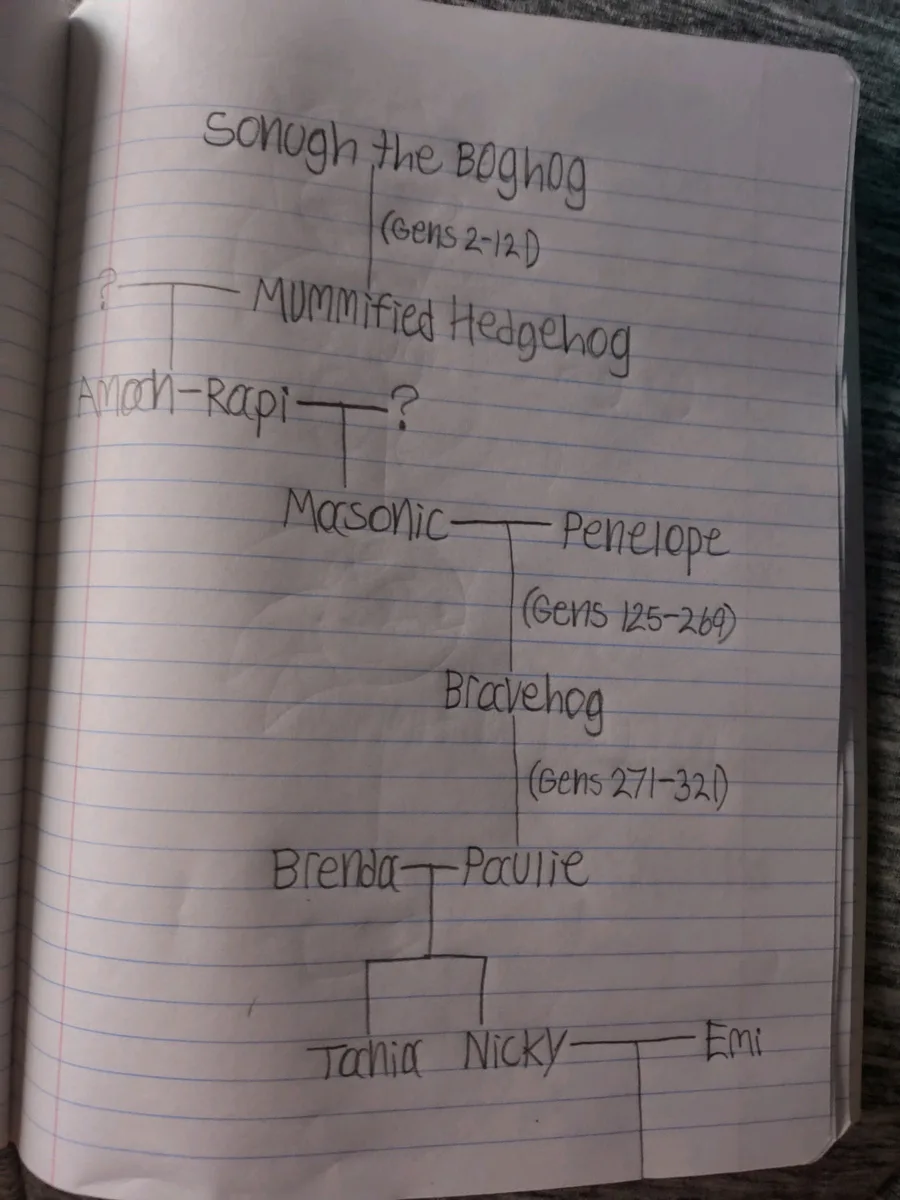 Sonugh the Boghog
(Gens 2-121)
? Mummified Hedgehog
Amoh-Rapi ?
Masonic Penelope
(Gens 125-269)
Bravehog
(Gens 271-321)
Brenda Paulie
Tania Nicky Emi